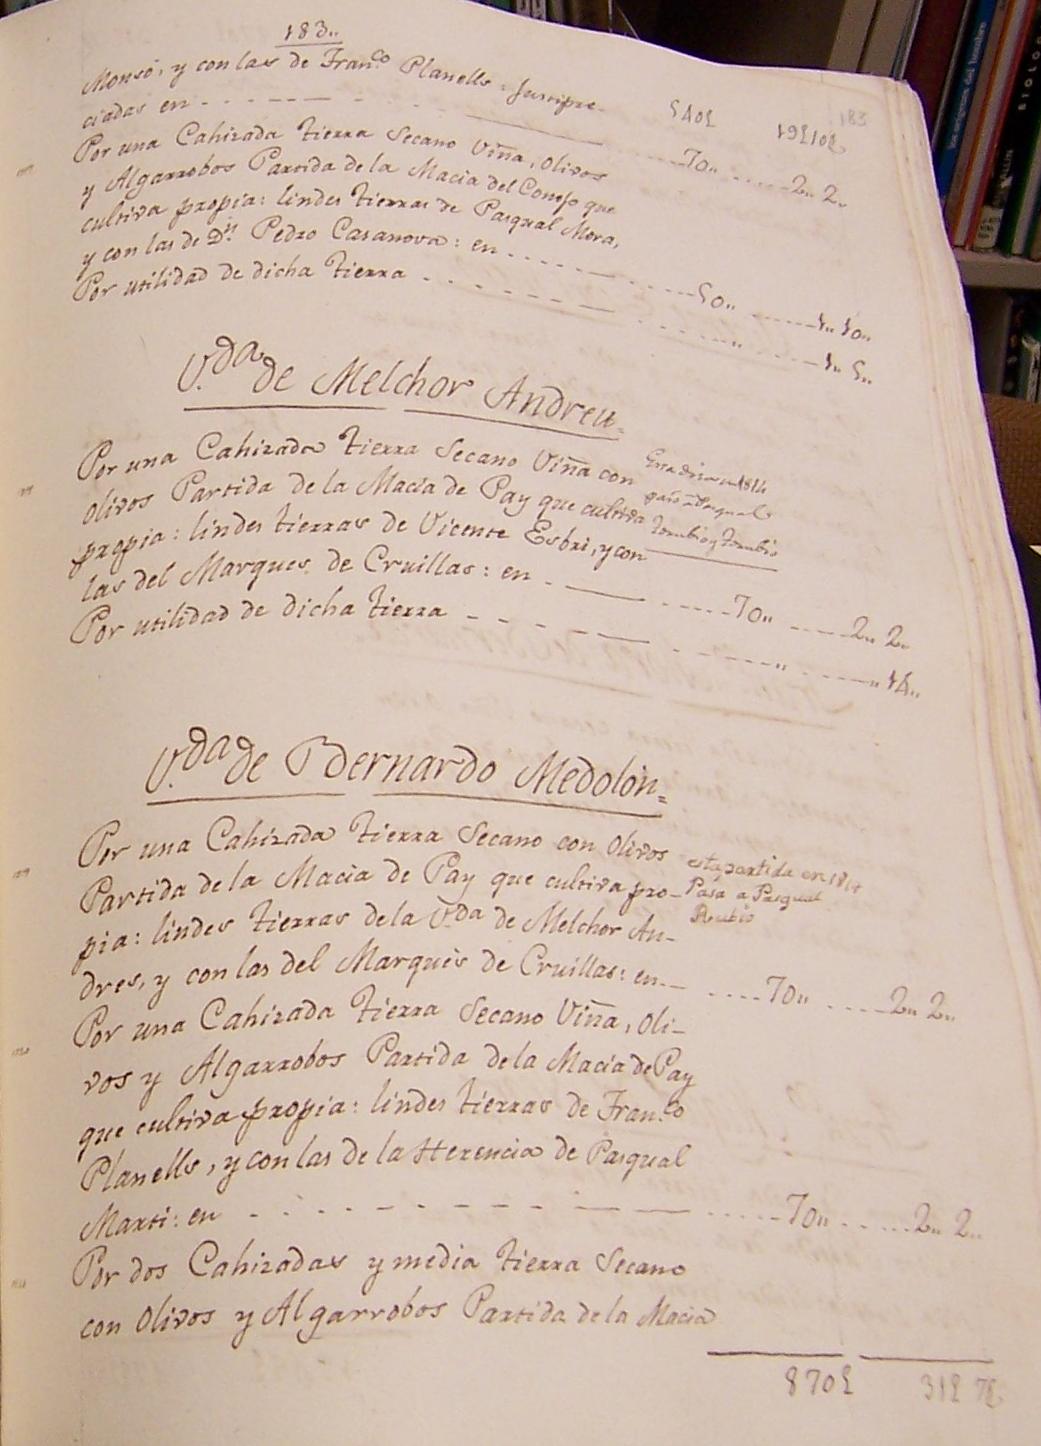 183..
183
Monsó, y con las de Fran.co Planells: Justipre-
ciadas en
540£ 19£10£
70.. 2.. 2..
Por una Cahizada tierra Secano Viña, Olivos
y Algarrobos Partida de la Macia del Consejo que
cultiva propia: lindes tierras de Pasqual Mora,
y con las de D.n Pedro Casanova: en 50.. 1.. 10..
Por utilidad de dicha tierra .. 1.. 5..
V.da de Melchor Andreu.
Por una Cahizada tierra Secano Viña con
Olivos Partida de la Macia de Pay que cultiva
propia: lindes tierras de Vicente Esbri, y con
las del Marques de Cruillas: en 70.. 2.. 2..
Por utilidad de dicha tierra .. .. 14..
V.da de Bernardo Medolón=
Por una Cahizada tierra Secano con Olivos
Partida de la Macia de Pay que cultiva pro-
pia: lindes tierras de la V.da de Melchor An-
dres, y con las del Marqués de Cruillas: en 70.. 2.. 2..
esta partida en 1814
Pasa a Pasqual
Rubio
Por una Cahizada tierra Secano Viña, Oli-
vos y Algarrobos Partida de la Macia de Pay
que cultiva propia: lindes tierras de Fran.co
Planells, y con las de la Herencia de Pasqual
Marti: en 70.. 2.. 2..
Por dos Cahizadas y media tierra Secano
con Olivos y Algarrobos Partida de la Macia
870£ 31£ 7£